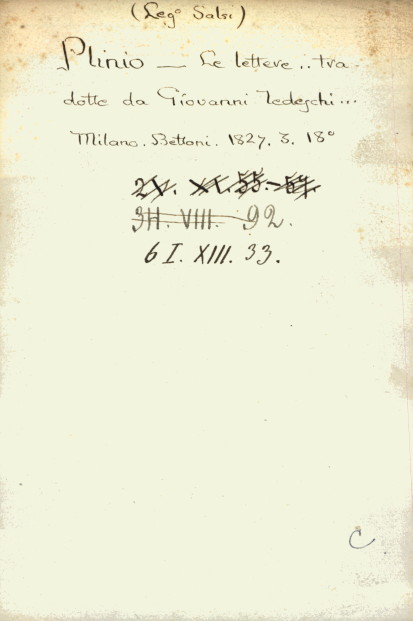 (Leg° Salsi)
Plinio — Le lettere .. tra-
dotte da Giovanni Tedeschi...
Milano. Bettoni. 1827. 3. 18°
3H. VIII. 92.
6 I. XIII. 33.
C